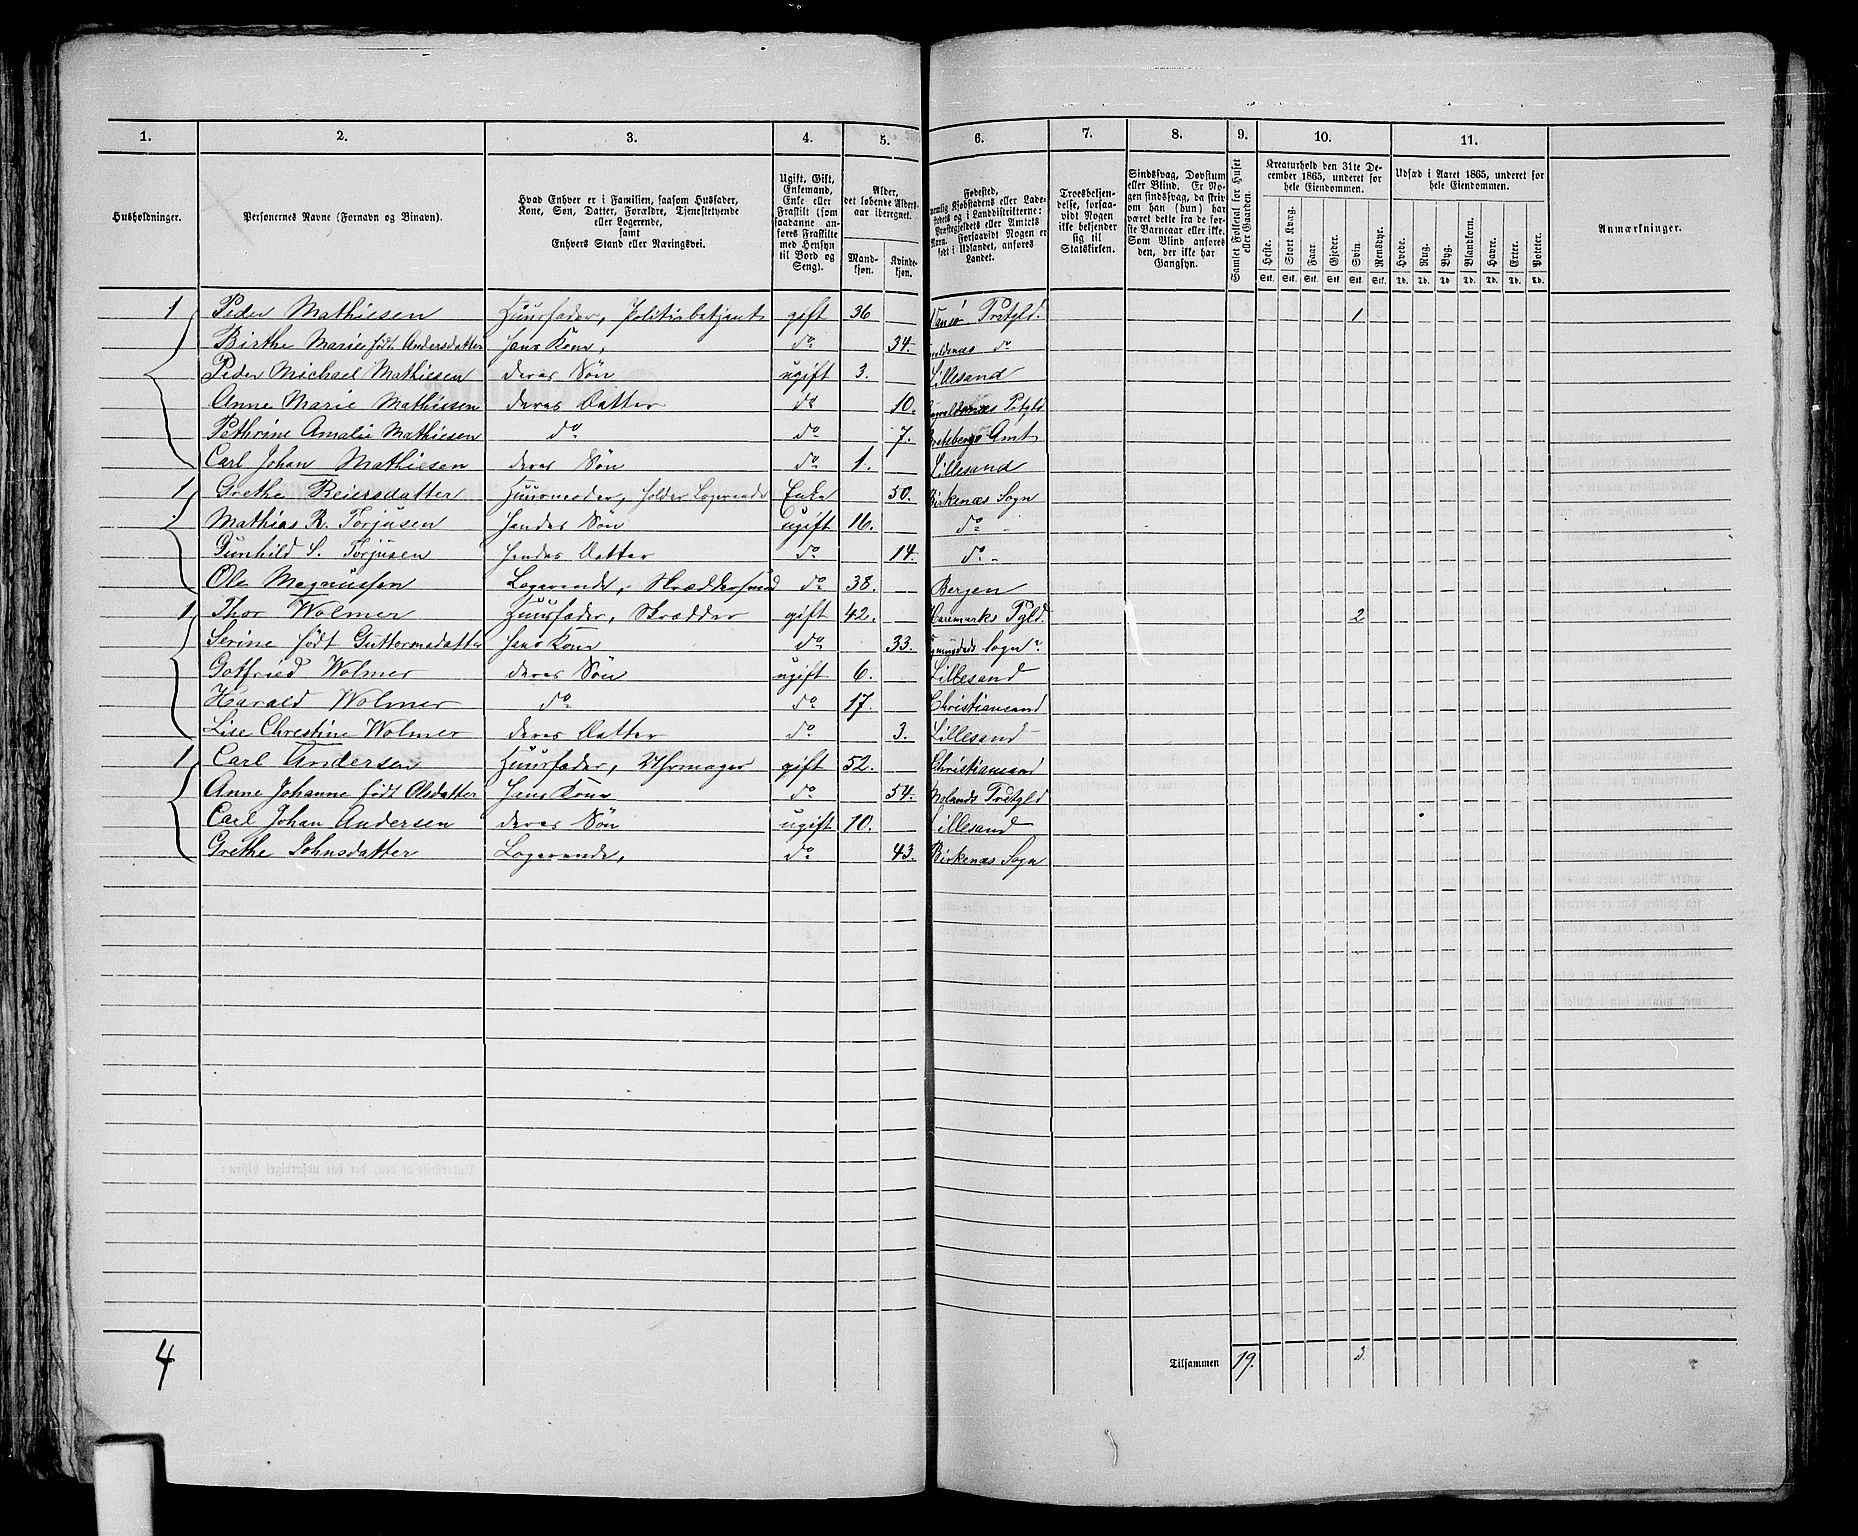 1. 2. 3. 4. 5. 6. 7. 8. 9. 10. 11.
Husholdninger. Personernes Navne (Fornavn og Binavn). Hvad Enhver er i Familien, saasom Husfader, Kone, Søn, Datter, Forældre, Tjenestetyende eller Logerende, samt Enhvers Stand eller Næringsvei. Ugift, Gift, Enkemand, Enke eller Fraskilt (som saadanne anføres Fraskilte med Hensyn til Bord og Seng). Alder, det løbende Alders-aar iberegnet. Mand-kjøn. Kvinde-kjøn. Fødested, Kjøbstadens eller Lade-stedets og i Landdistrikterne: Præstegjeldets eller Amtets Navn. Forsaavidt Nogen er født i Udlandet, anføres Landet. Troesbekjen-delse, forsaa-vidt Nogen ikke bekjender sig til Statskirken. Sindssvag, Døvstum eller Blind. Er No-gen sindssvag, da skriv om han (hun) har været dette fra de før-ste Barneaar eller ikke. Som Blind anføres den, der ikke har Gangsyn. Samlet Folketal for Huset eller Gaarden. Kreaturhold den 31te De-cember 1865, underet for hele Eiendommen. Udsæd i Aaret 1865, underet for hele Eiendommen. Anmærkninger.
Heste. Stort Kvæg. Faar. Gjeder. Svin. Rensdyr. Hvede. Rug. Byg. Blandkorn. Havre. Erter. Poteter.
Stk. Stk. Stk. Stk. Stk. Stk. Td. Td. Td. Td. Td. Td. Td.
1 Peder Mathiesen Huusfader, Politibetjent gift 36 Vansø Prstgld. 1
Birthe Marie født Andersdatter hans Kone, do 34. do
Peder Michael Mathiesen deres Søn ugift 3. Lillesand
Anne Marie Mathiesen deres Datter do 10. Prstgld
Pethrine Amalie Mathiesen do do 7. Bratsbergs Amt
Carl Johan Mathiesen deres Søn do 1. Lillesand
1 Grethe Reiersdatter Huusmoder, holder Logerende Enke 50. Birkenæs Sogn
Mathias R. Torjusen hendes Søn ugift 16. do
Gunhild S. Torjusen hendes Datter do 14. do
Ole Magnussen Logerende, Skræddersvend do 38. Bergen
1 Thor Wolmer Huusfader, Skrædder gift 42. Haremarks Pgld. 2
Serine født Guttormsdatter hans Kone do 33. Sogn
Gotfried Wolmer deres Søn ugift 6. Lillesand
Harald Wolmer do do 17. Christiansand
Lise Christine Wolmer deres Datter do 3. Lillesand
1 Carl Andersen Huusfader, Uhrmager gift 52. Christiansand
Anne Johanne født Olsdatter hans Kone do 54. Molands Prstgld
Carl Johan Andersen deres Søn ugift 10. Lillesand
Grethe Johnsdatter Logerende, do 43. Birkenæs Sogn
4 Tilsammen 19. 3